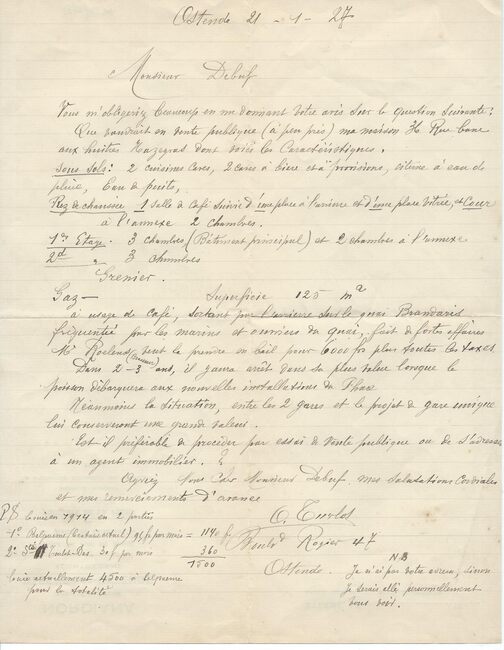 Ostende 21 - 1 - 27
Monsieur Debuf
Vous m'obligeriez beaucoup en me donnant votre avis sur la question suivante :
Que vaudrait en vente publique (à peu près) ma maison 36 Rue
aux huitres Hazegras dont voici les Caractéristiques.
Sous Sols : 2 cuisines Caves, 2 caves à bière et à provisions, citerne à eau de
pluie, Eau de puits,
Rez de chaussée 1 salle de Café suivie d'une place à l'arrière et d'une place vitrée, et Cour
à l'annexe 2 chambres.
1er Etage. 3 chambres (Bâtiment principal) et 2 chambres à l'annexe
2d " 3 chambres
Grenier.
Gaz — Superficie 125 m2
à usage de café, sortant par l'arrière sur le quai
fréquentée par les marins et ouvriers du quai, fait de fortes affaires
Mr Roelens veut la prendre en bail pour 6000 frs plus toutes les taxes
Dans 2-3 ans, il y aura arrêt dans la plus value lorsque le
poisson débarquera aux nouvelles installations du Phare
Néanmoins la situation, entre les 2 gares et le projet de gare unique
lui conserveront une grande valeur.
Est il préférable de procéder par essai de vente publique ou de s'adresser
à un agent immobilier. ?
Agréez Monsieur Debuf, mes salutations cordiales
et mes remerciements d'avance
PS louée en 1914 en 2 parties
1º 95 fr par mois = 1140 fr
2º 30 f par mois 360
1500
louée actuellement 4500
pour la totalité
Rogier 47
Ostende.
NB
Je n'ai pas votre adresse, sinon
Je serais allé personnellement
vous voir.